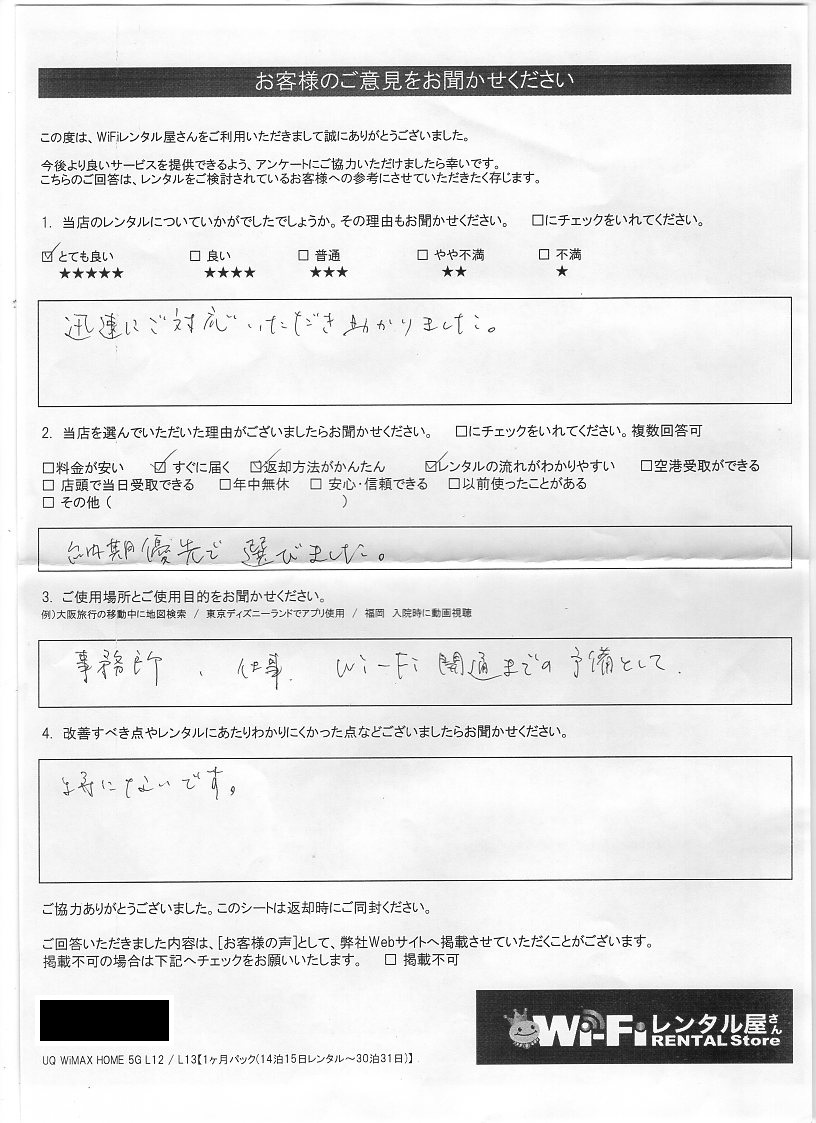 お客様のご意見をお聞かせください
この度は、WiFiレンタル屋さんをご利用いただきまして誠にありがとうございました。
今後より良いサービスを提供できるよう、アンケートにご協力いただけましたら幸いです。
こちらのご回答は、レンタルをご検討されているお客様への参考にさせていただきたく存じます。
1. 当店のレンタルについていかがでしたでしょうか。その理由もお聞かせください。 □にチェックをいれてください。
☑とても良い □ 良い □ 普通 □ やや不満 □ 不満
★★★★★ ★★★★ ★★★ ★★ ★
迅速にご対応いただき助かりました。
2. 当店を選んでいただいた理由がございましたらお聞かせください。 □にチェックをいれてください。複数回答可
□料金が安い ☑すぐに届く ☑返却方法がかんたん ☑レンタルの流れがわかりやすい □空港受取ができる
□ 店頭で当日受取できる □年中無休 □ 安心・信頼できる □以前使ったことがある
□ その他 ( )
納期優先で選びました。
3. ご使用場所とご使用目的をお聞かせください。
例)大阪旅行の移動中に地図検索 / 東京ディズニーランドでアプリ使用 / 福岡 入院時に動画視聴
事務所、仕事. Wi-Fi開通までの予備として.
4. 改善すべき点やレンタルにあたりわかりにくかった点などございましたらお聞かせください。
特にないです。
ご協力ありがとうございました。このシートは返却時にご同封ください。
ご回答いただきました内容は、[お客様の声]として、弊社Webサイトへ掲載させていただくことがございます。
掲載不可の場合は下記へチェックをお願いいたします。 □ 掲載不可
Wi-Fiレンタル屋さん
RENTAL Store
UQ WiMAX HOME 5G L12 / L13【1ヶ月パック(14泊15日レンタル～30泊31日)】